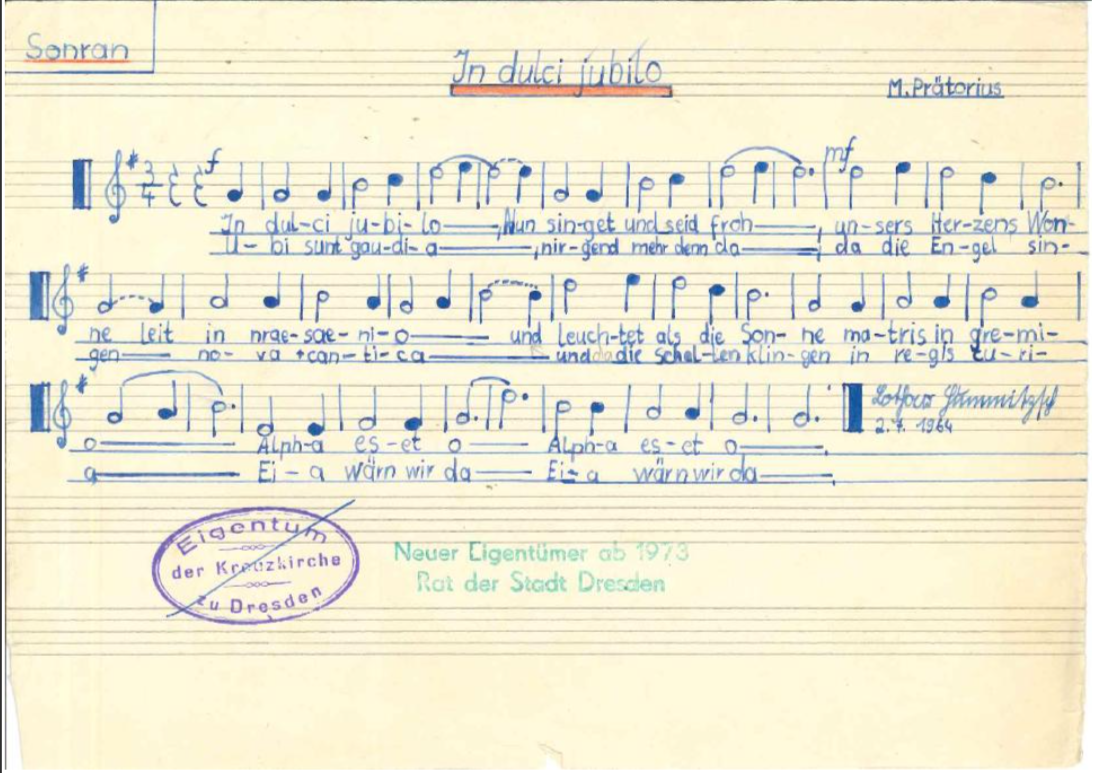 Sopran
In dulci jubilo
M. Prätorius
f
mf
3/4
In dul-ci ju-bi-lo, Nun sin-get und seid froh, un-sers Her-zens Won-
U-bi sunt gau-di-a, nir-gend mehr denn da, da die En-gel sin-
ne leit in prae-sae-pi-o und leuch-tet als die Son-ne ma-tris in gre-mi-
gen no-va can-ti-ca und die schel-len klin-gen in re-gis cu-ri-
o Alph-a es-et o Alph-a es-et o.
a Ei-a wärn wir da Ei-a wärn wir da,
2.7. 1964
Eigentum
der Kreuzkirche
zu Dresden
Neuer Eigentümer ab 1973
Rat der Stadt Dresden